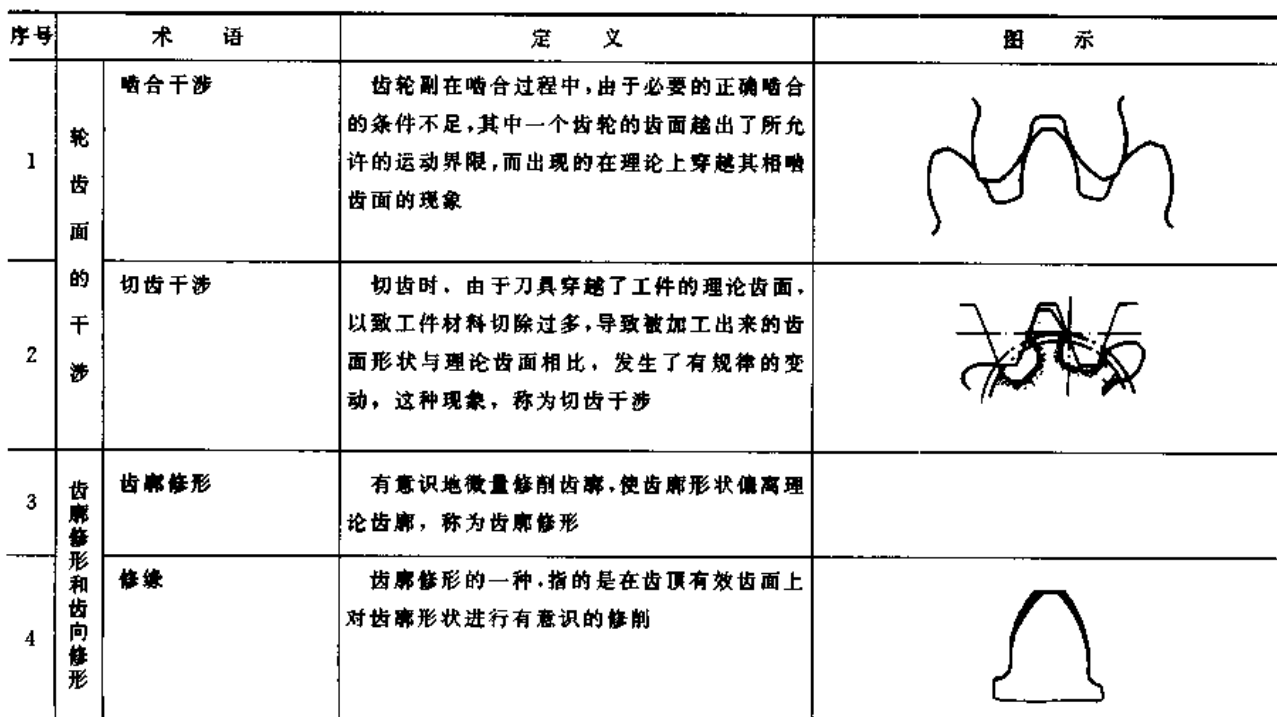 序号 术语 定义 图示
1 轮齿面的干涉 啮合干涉 齿轮副在啮合过程中,由于必要的正确啮合
的条件不足,其中一个齿轮的齿面越出了所允
许的运动界限,而出现的在理论上穿越其相啮
齿面的现象
2 切齿干涉 切齿时,由于刀具穿越了工件的理论齿面,
以致工件材料切除过多,导致被加工出来的齿
面形状与理论齿面相比,发生了有规律的变
动,这种现象,称为切齿干涉
3 齿廓修形和齿向修形 齿廓修形 有意识地微量修削齿廓,使齿廓形状偏离理
论齿廓,称为齿廓修形
4 修缘 齿廓修形的一种,指的是在齿顶有效齿面上
对齿廓形状进行有意识的修削